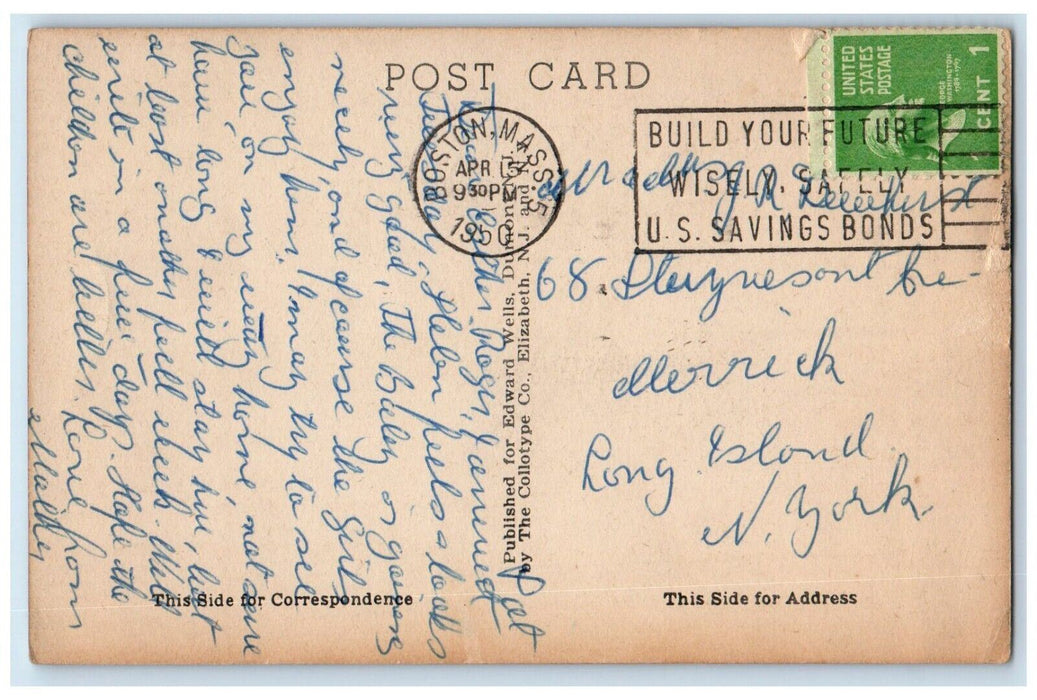 POST CARD
UNITED
STATES
POSTAGE
GEORGE
WASHINGTON
1789-1797
1
CENT
BOSTON, MASS. 5
APR 15
9 30 PM
1950
BUILD YOUR FUTURE
WISELY, SAFELY
U.S. SAVINGS BONDS
Pat
Dear Esther, Roger, I arrived
Tuesday, Helen feels & looks
very good, The Baby is gaining
nicely and of course the Girls
enjoy him, I may try to see
you on my way home, not sure
how long I will stay here, but
at least another full week. Will
write in a few days. Hope the
children are better. Love from
Mother
Published for Edward Wells, Dumont, N.J.
by The Collotype Co., Elizabeth, N.J. and N.Y.
Mr & Mrs J. R.
68 Stuyvesant Ave
Merrick
Long Island
N. York
This Side for Correspondence
This Side for Address